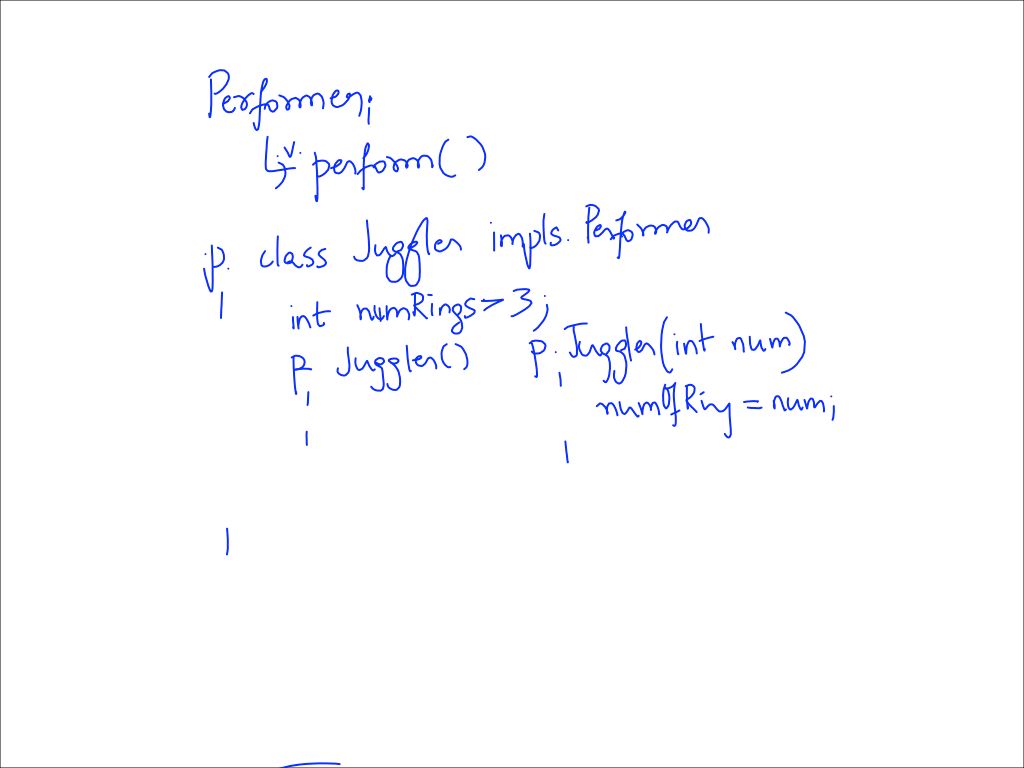 Performer;
↳ v. perform( )
p. class Juggler impls. Performer
int numRings = 3;
p Juggler() p. Juggler(int num)
numOfRing = num;